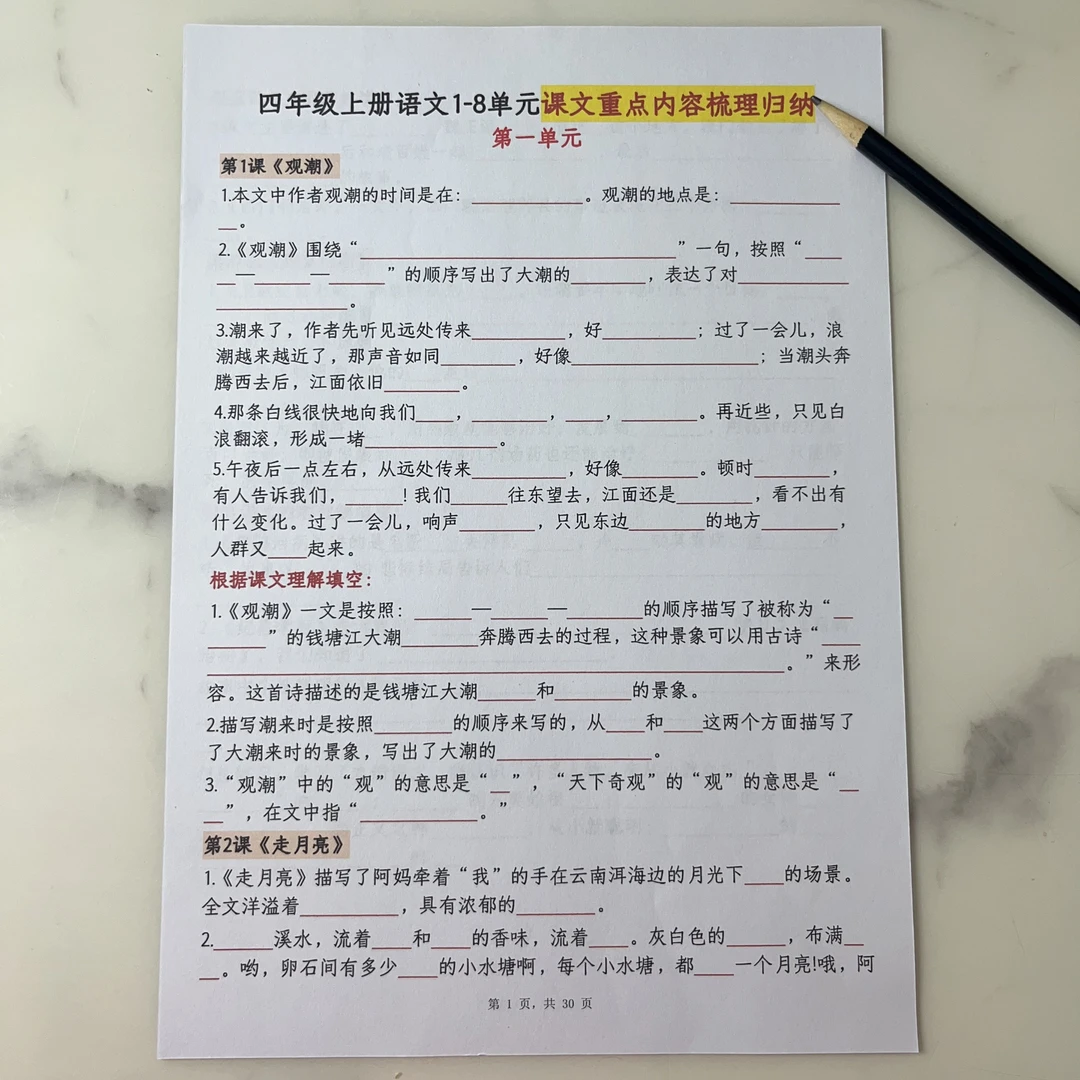 四年级上册语文1-8单元课文重点内容梳理归纳
第一单元
第1课《观潮》
1.本文中作者观潮的时间是在：____________。观潮的地点是：____________
__。
2.《观潮》围绕“__________________________________”一句，按照“____
____—______—______”的顺序写出了大潮的________，表达了对____________
______________。
3.潮来了，作者先听见远处传来__________，好__________；过了一会儿，浪
潮越来越近了，那声音如同________，好像____________________；当潮头奔
腾西去后，江面依旧________。
4.那条白线很快地向我们____，________，____，________。再近些，只见白
浪翻滚，形成一堵______________。
5.午夜后一点左右，从远处传来__________，好像________。顿时________，
有人告诉我们，______！我们______往东望去，江面还是________，看不出有
什么变化。过了一会儿，响声________，只见东边________的地方________，
人群又____起来。
根据课文理解填空：
1.《观潮》一文是按照：______—_____—________的顺序描写了被称为“__
______”的钱塘江大潮________奔腾西去的过程，这种景象可以用古诗“____
______________________________________________________________。”来形
容。这首诗描述的是钱塘江大潮______和________的景象。
2.描写潮来时是按照________的顺序来写的，从____和____这两个方面描写了
了大潮来时的景象，写出了大潮的________________。
3.“观潮”中的“观”的意思是“__”，“天下奇观”的“观”的意思是“__
__”，在文中指“____________。”
第2课《走月亮》
1.《走月亮》描写了阿妈牵着“我”的手在云南洱海边的月光下____的场景。
全文洋溢着__________，具有浓郁的________。
2.______溪水，流着____和____的香味，流着____。灰白色的______，布满__
__。哟，卵石间有多少____的小水塘啊，每个小水塘，都____一个月亮!哦，阿
第 1 页，共 30 页